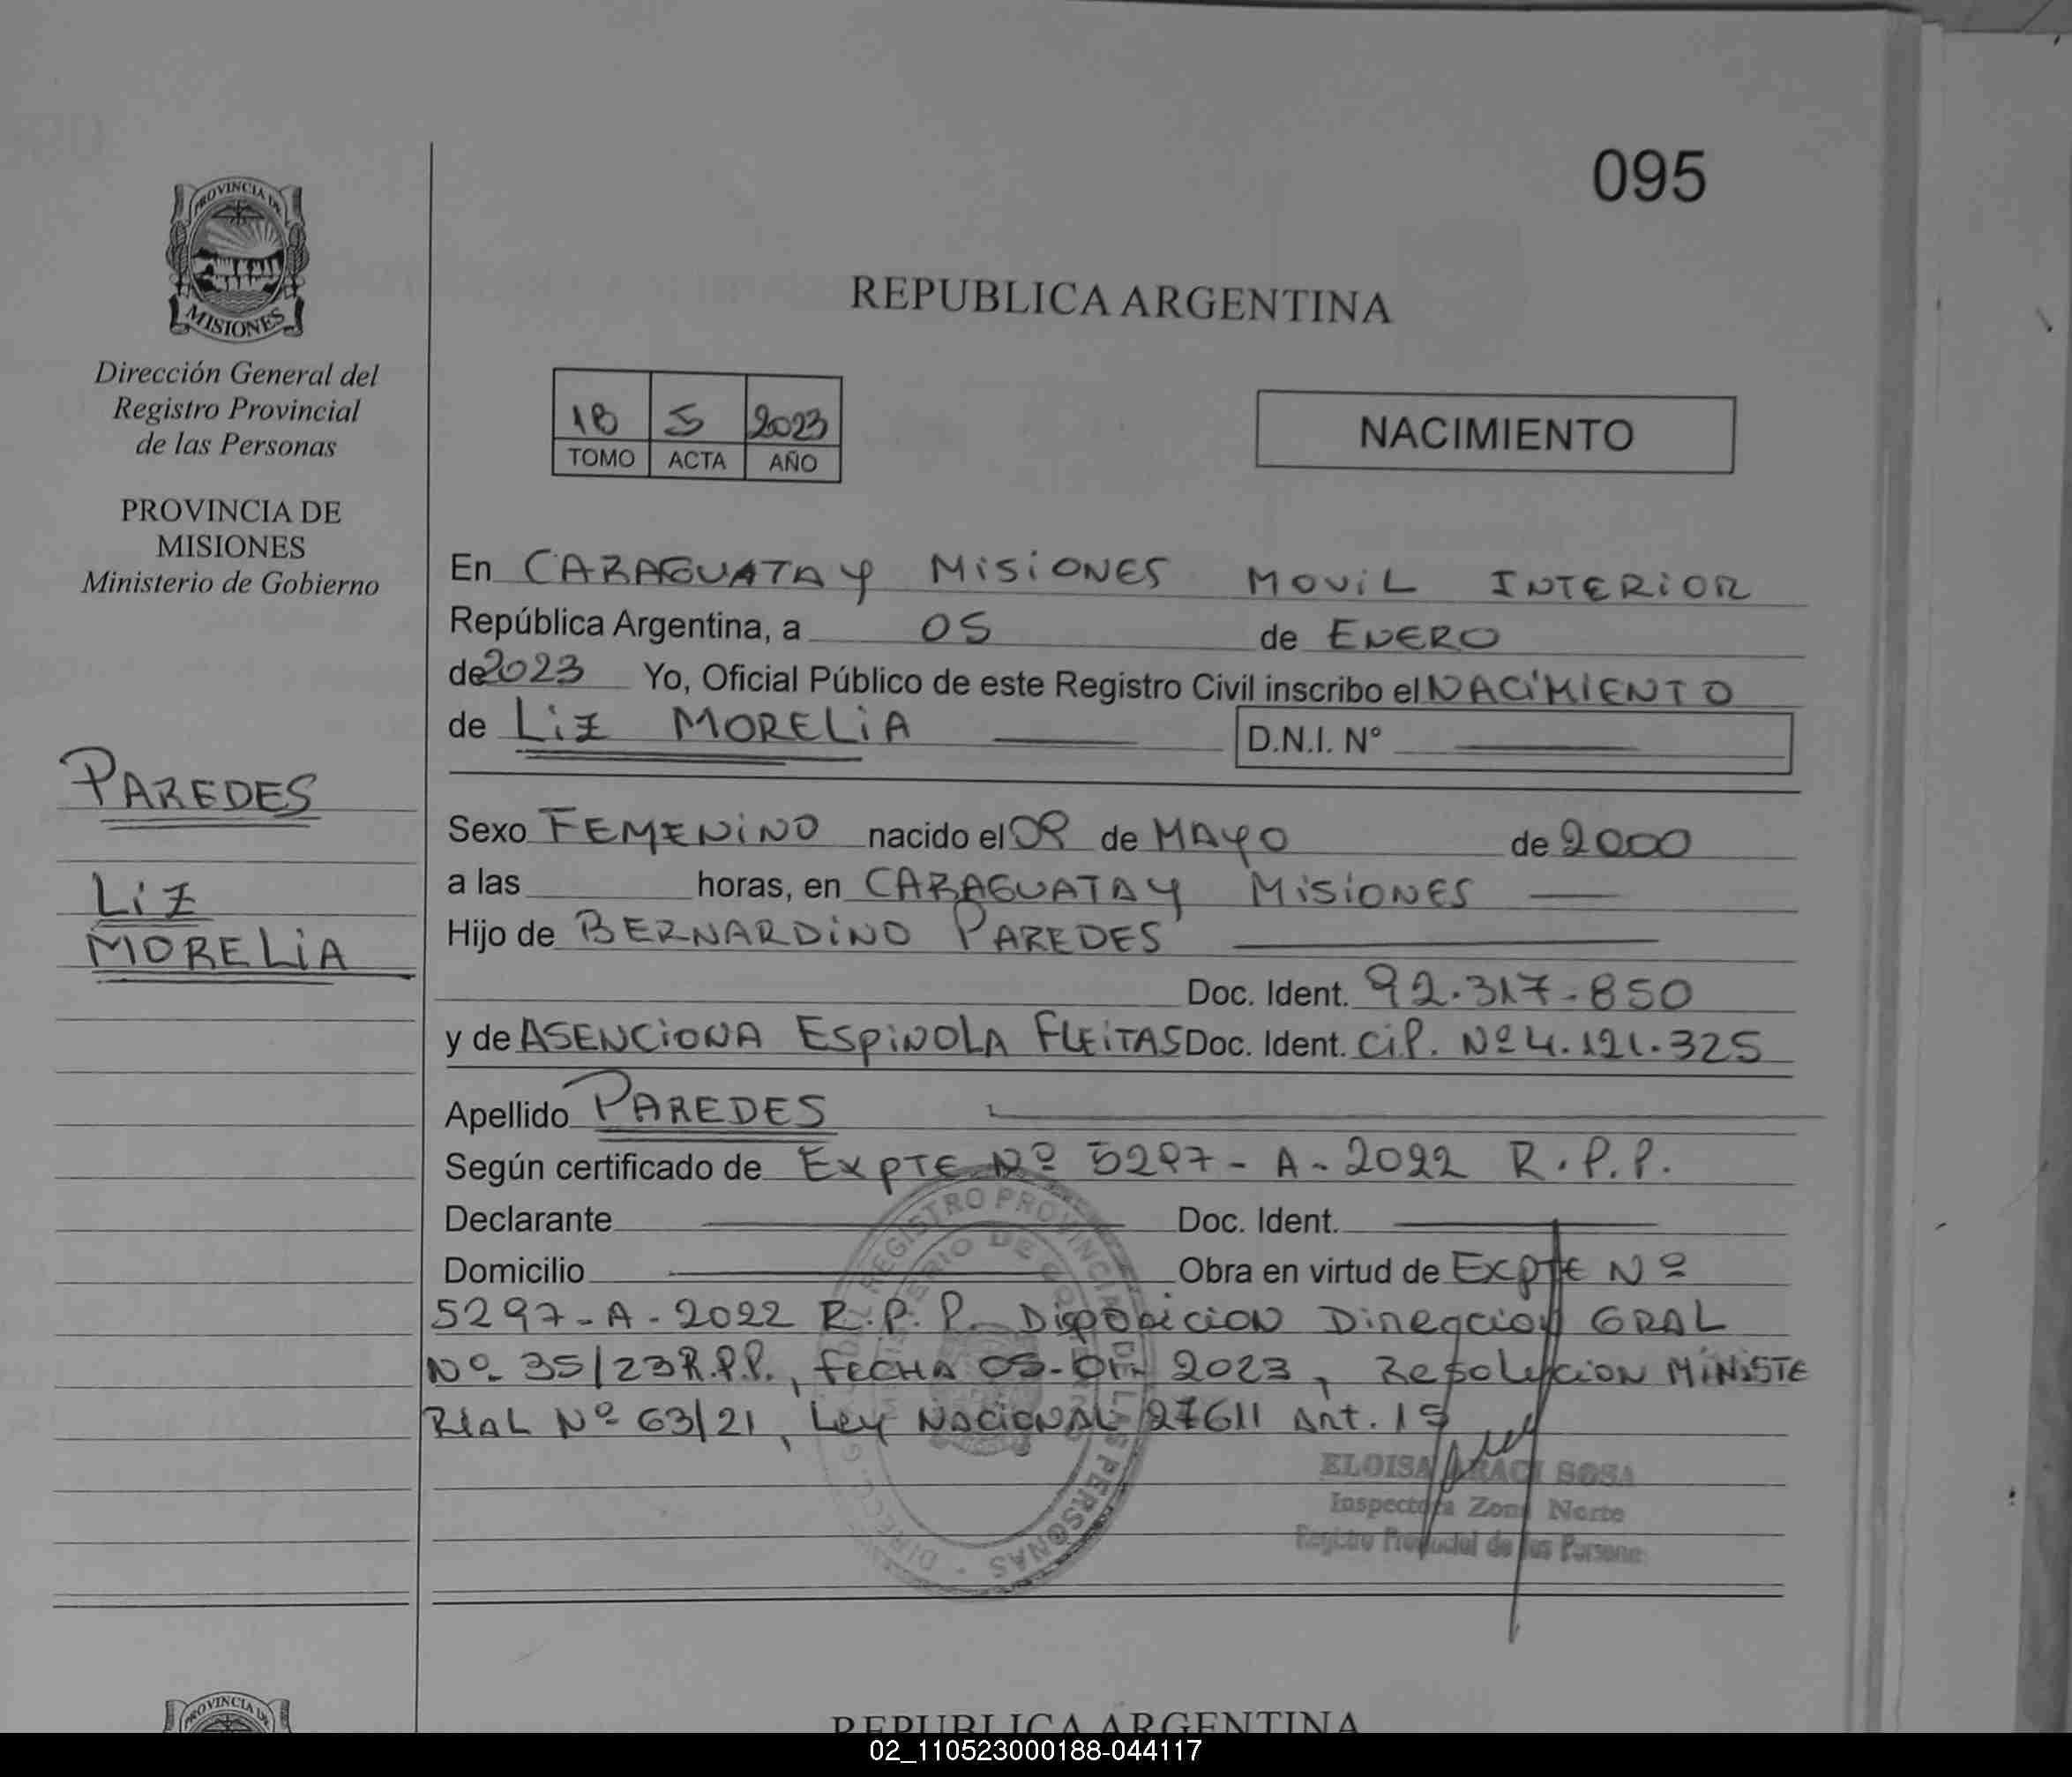 095
PROVINCIA DE
MISIONES
REPUBLICA ARGENTINA
Dirección General del
Registro Provincial
de las Personas
PROVINCIA DE
MISIONES
Ministerio de Gobierno
18 5 2023
TOMO ACTA AÑO
NACIMIENTO
En CARAGUATAY MISIONES MOVIL INTERIOR
República Argentina, a 05 de ENERO
de 2023 Yo, Oficial Público de este Registro Civil inscribo el NACIMIENTO
de LIZ MORELIA D.N.I. N°
PAREDES
LIZ
MORELIA
Sexo FEMENINO nacido el 09 de MAYO de 2000
a las horas, en CARAGUATAY MISIONES
Hijo de BERNARDINO PAREDES
Doc. Ident. 92.317.850
y de ASENCIONA ESPINOLA FLEITAS Doc. Ident. C.i.P. Nº 4.121.325
Apellido PAREDES
Según certificado de EXPTE Nº 5297-A-2022 R.P.P.
Declarante Doc. Ident.
Domicilio Obra en virtud de EXPTE Nº
5297-A-2022 R.P.P. DISPOSICION DIRECCION GRAL
Nº 35/23 R.P.P., FECHA 05-01-2023, RESOLUCION MINISTE
RIAL Nº 63/21, LEY NACIONAL 27611 Art. 15
ELOISA ARACI SOSA
Inspectora Zona Norte
Registro Provincial de las Persona
PROVINCIA DE
REPUBLICA ARGENTINA
02_110523000188-044117